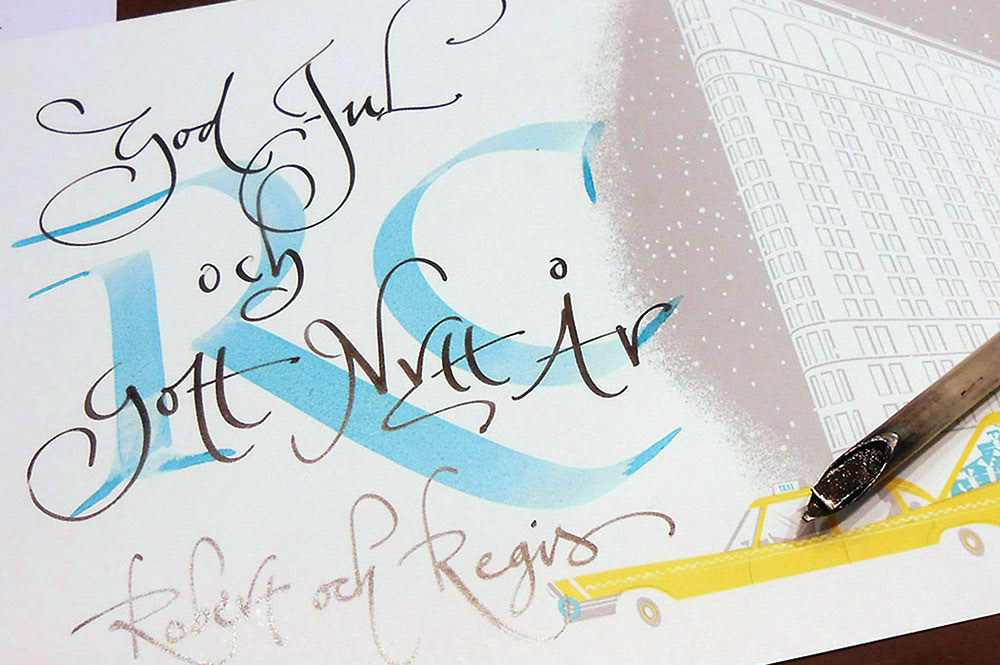 God Jul
och
gott Nytt År
RC
Robert och Regis
TAXI